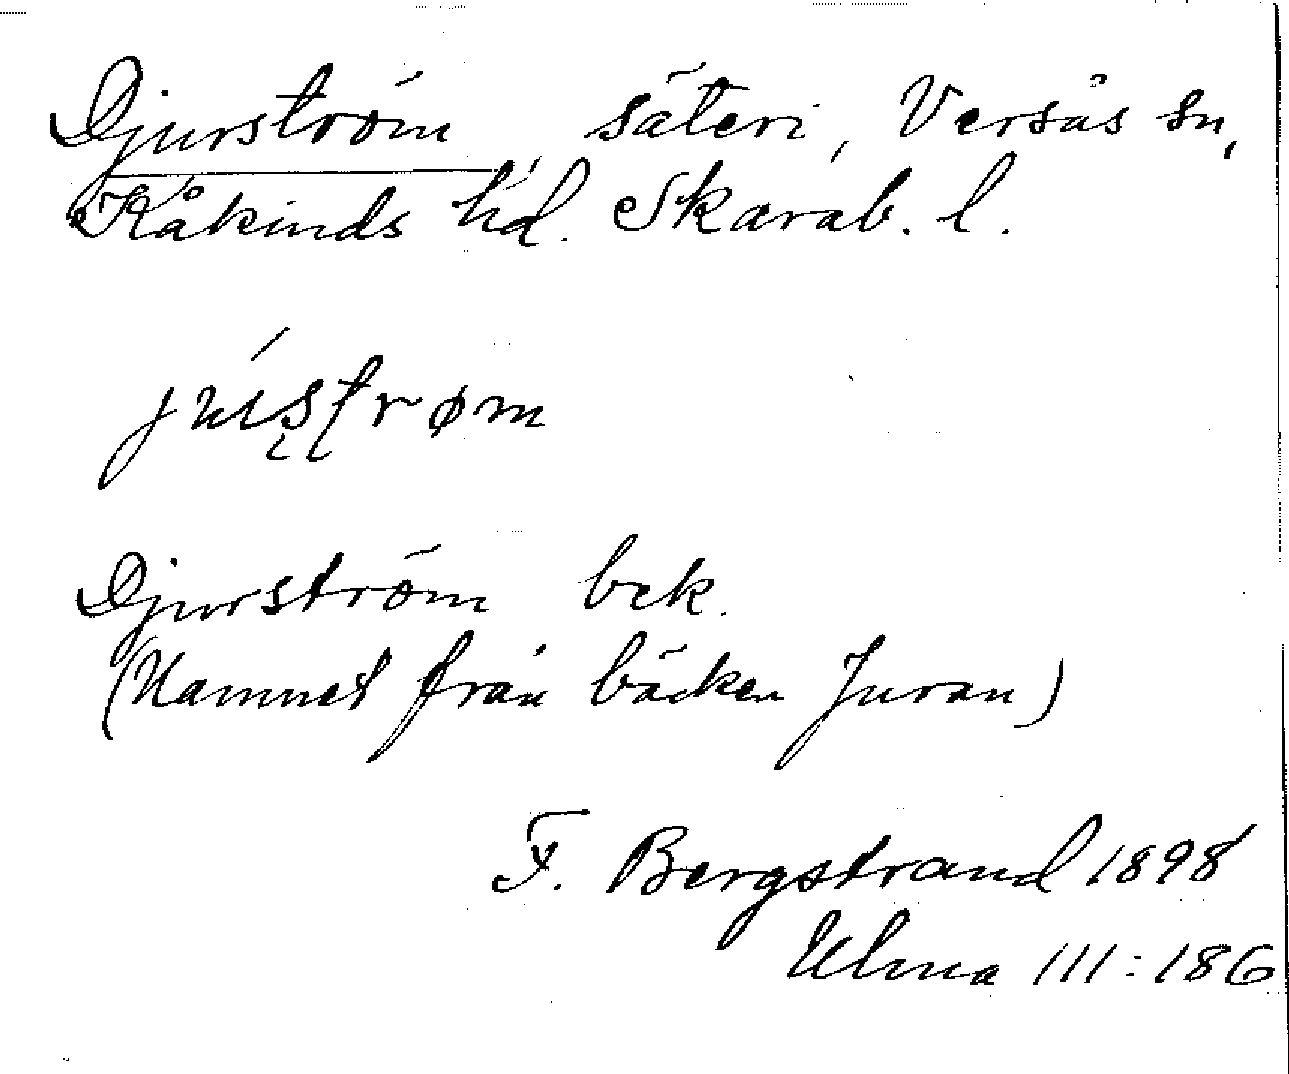 Djurström säteri, Versås sn,
Kåkinds hd. Skarab. l.
Djurström bek.
(Namnet från bäcken Juran)
F. Bergstrand 1898
Ulma 111:186